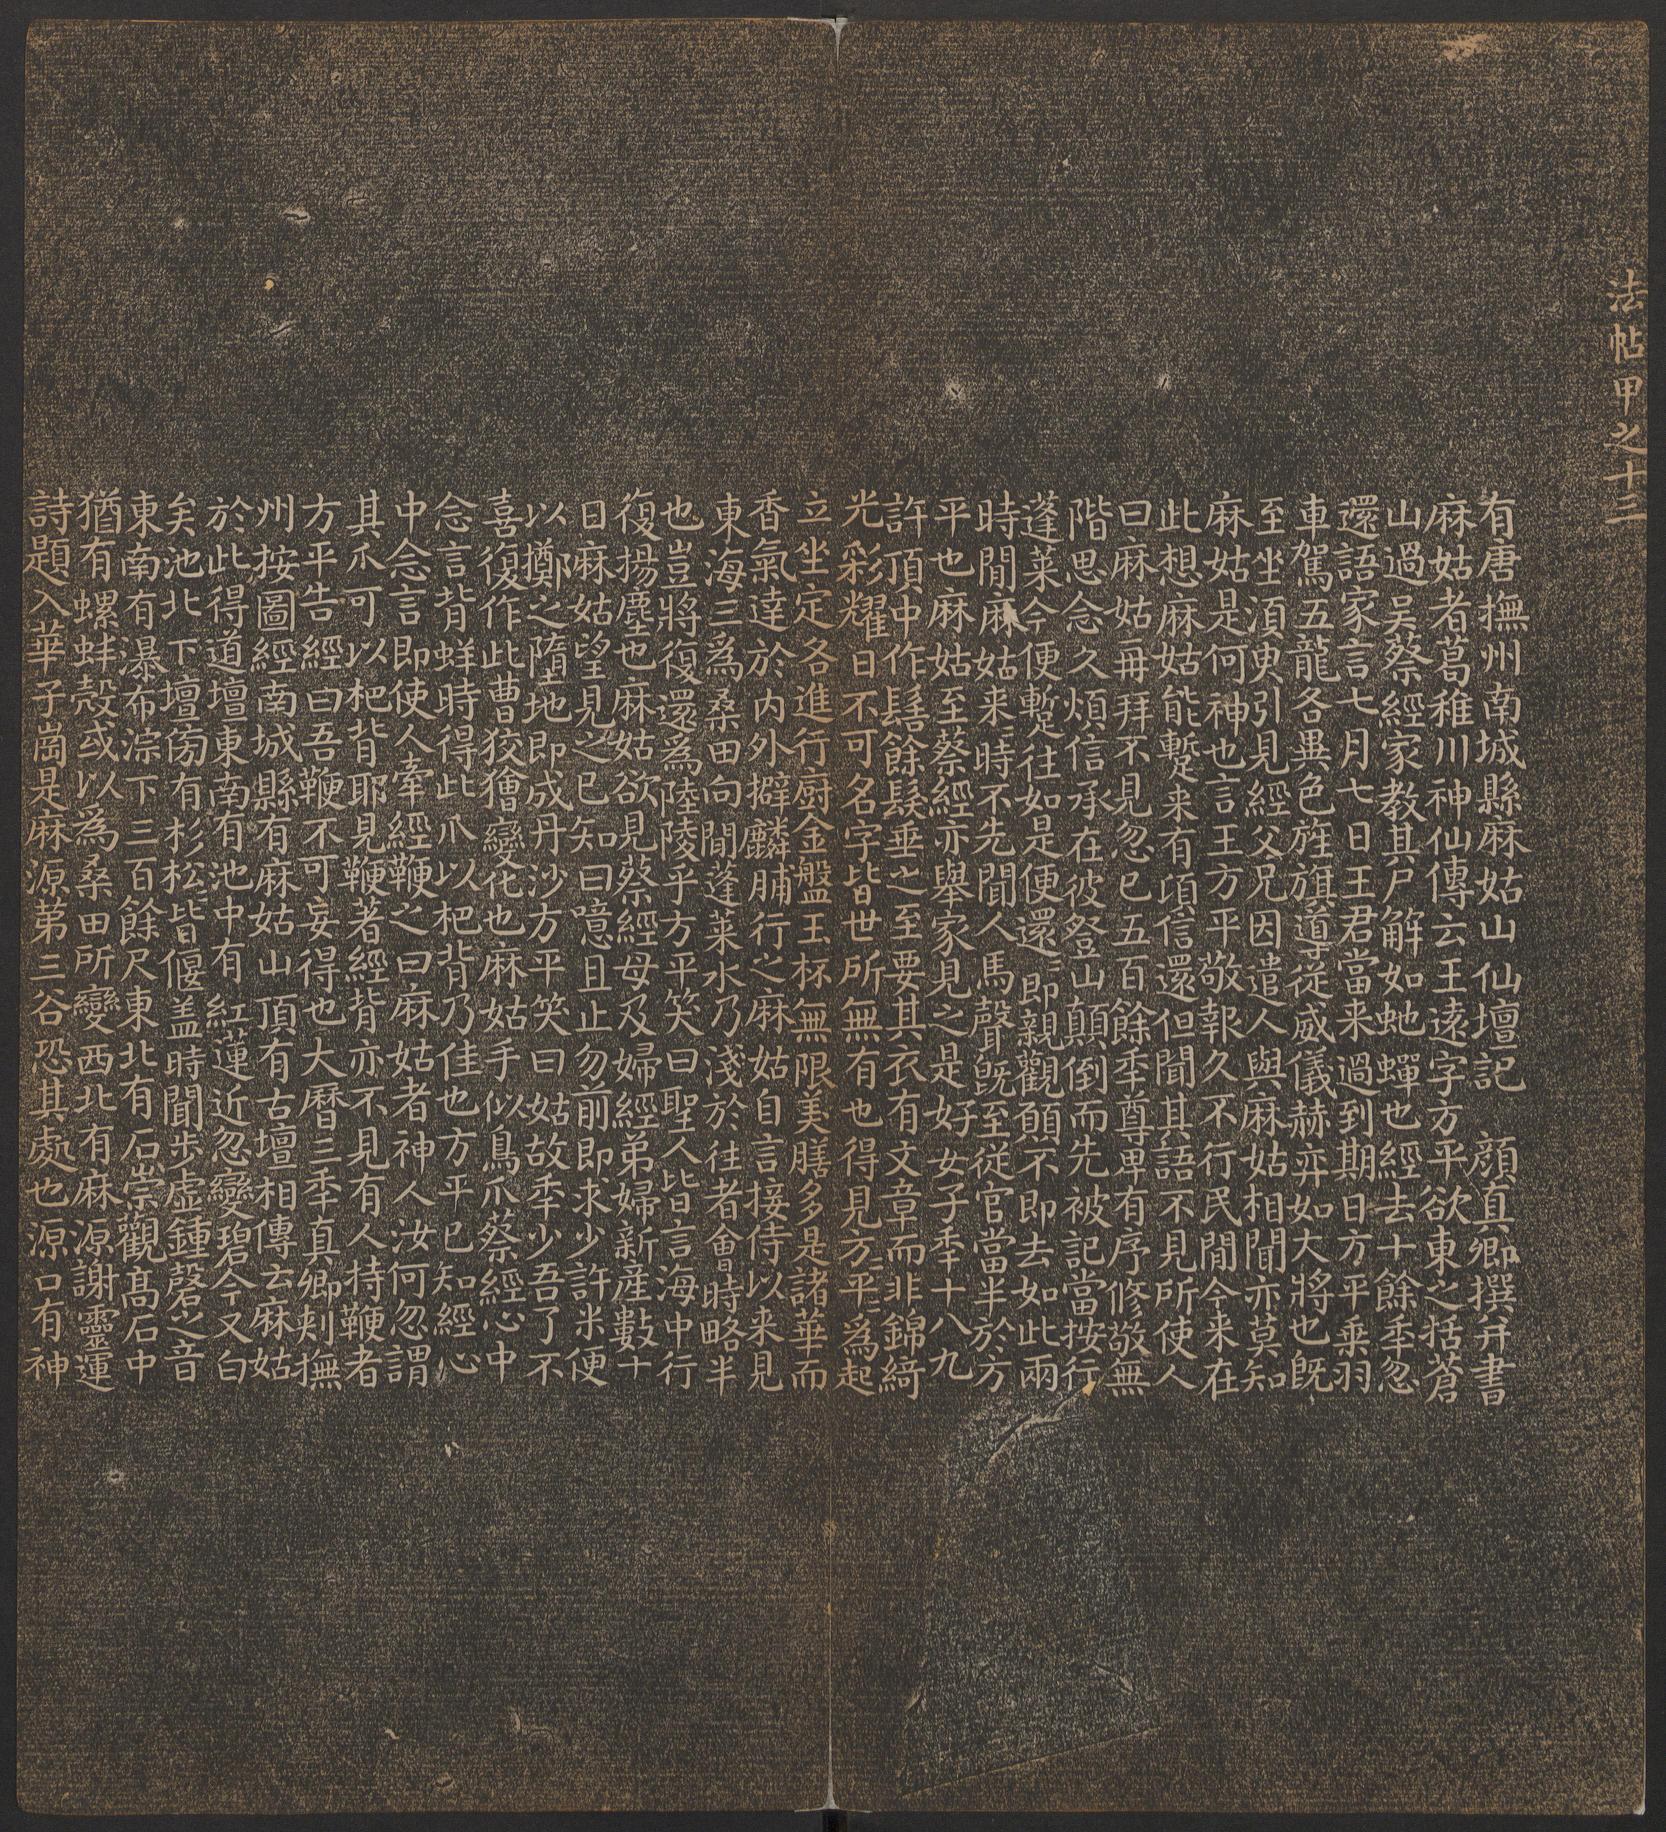 法帖甲之十三
有唐撫州南城縣麻姑山仙壇記 顔真卿撰并書
麻姑者葛稚川神仙傳云王遠字方平欲東之括蒼
山過吴蔡經家教其尸解如虵蟬也經去十餘秊忽
還語家言七月七日王君當来過到期日方平乗羽
車駕五龍各異色旌旗導従威儀赫弈如大將也旣
至坐湏臾引見經父兄因遣人與麻姑相聞亦莫知
麻姑是何神也言王方平敬報久不行民閒今来在
此想麻姑能蹔来有頃信還但聞其語不見所使人
曰麻姑再拜不見忽已五百餘秊尊卑有序修敬無
階思念久煩信承在彼登山顛倒而先被記當按行
蓬莱今便蹔往如是便還還即親觀願不即去如此兩
時間麻姑来来時不先聞人馬聲旣至従官當半於方
平也麻姑至蔡經亦舉家見之是好女子秊十八九
許頂中作髻餘髮垂之至要其衣有文章而非錦綺
光彩耀日不可名字皆世所無有也得見方平方平爲起
立坐定各進行厨金盤玉杯無限美膳多是諸華而
香氣達於内外擗麟脯行之麻姑自言接侍以来見
東海三爲桑田向間蓬莱水乃淺於往者會時略半
也豈將復還爲陸陵乎方平笑曰聖人皆言海中行
復揚塵也麻姑欲見蔡經母及婦經弟婦新産數十
日麻姑望見之已知曰噫且止勿前即求少許米便
以擲之墮地即成丹沙方平笑曰姑故秊少吾了不
喜復作此曹狡獪變化也麻姑手似鳥爪蔡經心中
念言背蛘時得此爪以杷背乃佳也方平已知經心
中念言即使人牽經鞭之曰麻姑者神人汝何忽謂
其爪可以杷背耶見鞭著經背亦不見有人持鞭者
方平告經曰吾鞭不可妄得也大曆三秊真卿刺撫
州按圖經南城縣有麻姑山頂有古壇相傳云麻姑
於此得道壇東南有池中有紅蓮近忽變碧今又白
矣池北下壇傍有杉松松皆偃盖時聞步虚鍾磬之音
東南有瀑布淙下三百餘尺東北有石崇觀髙石中
猶有螺蚌殻或以爲桑田所變西北有麻源謝靈運
詩題入華子崗是麻源第三谷恐其處也源口有神